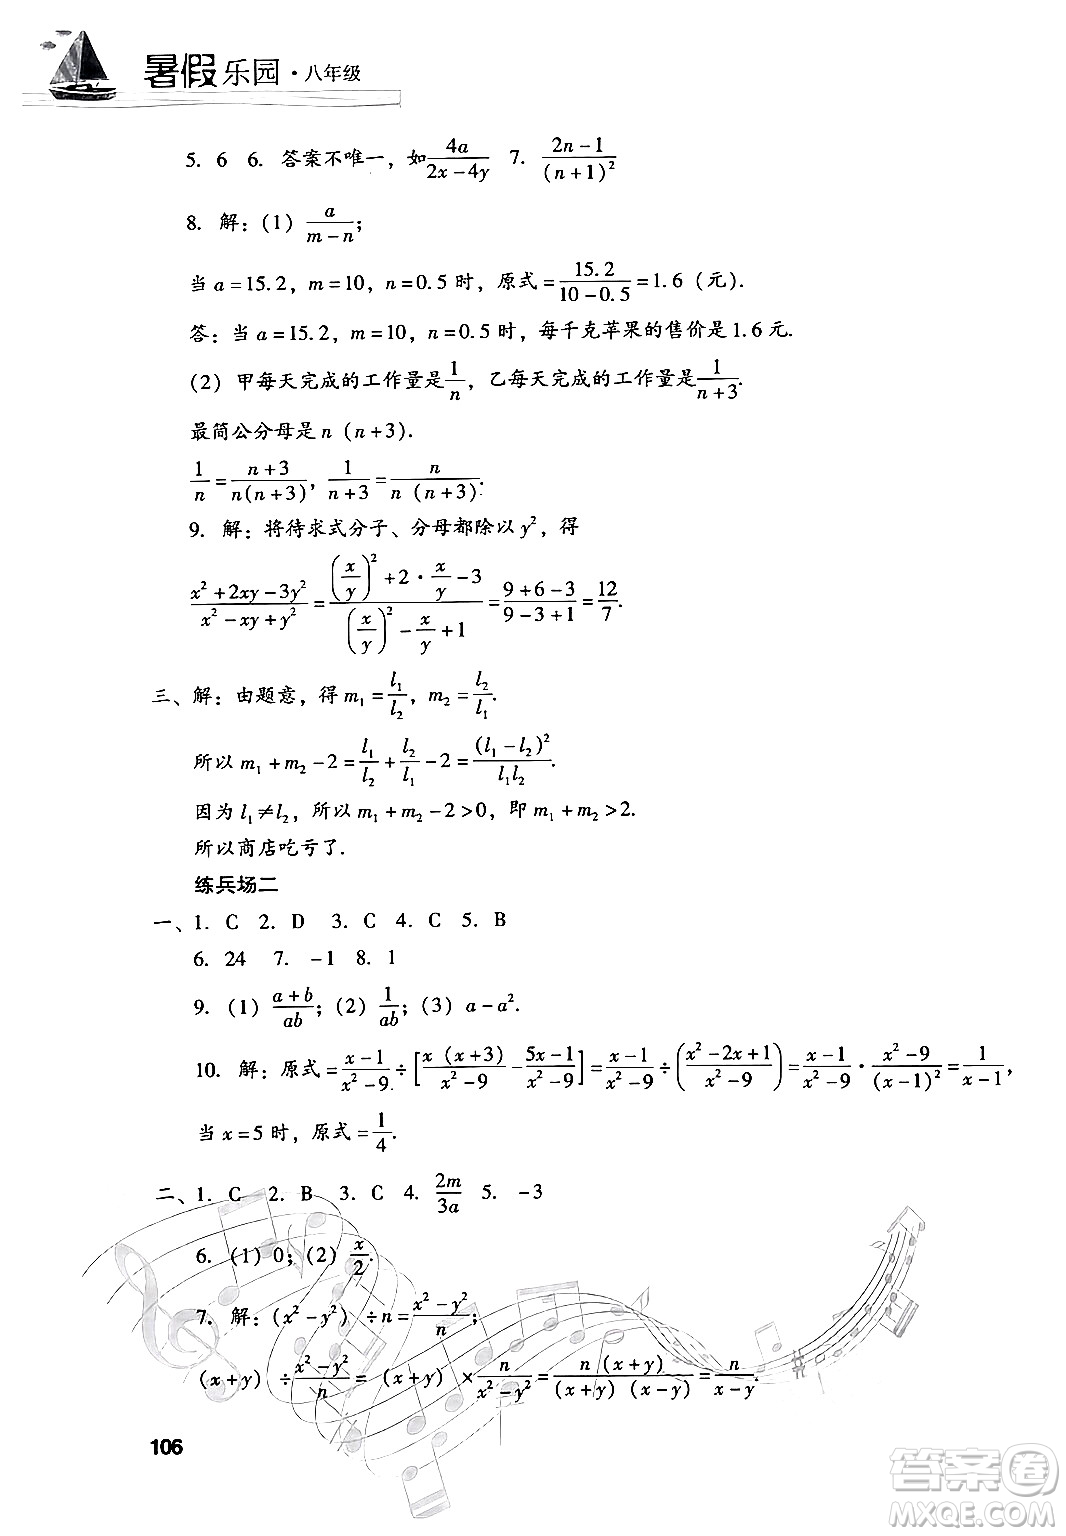 暑假乐园·八年级
5. 6 6. 答案不唯一，如$\frac{4a}{2x-4y}$ 7. $\frac{2n-1}{(n+1)^2}$
8. 解：(1) $\frac{a}{m-n}$；
当 a=15.2，m=10，n=0.5 时，原式=$\frac{15.2}{10-0.5}$=1.6（元）.
答：当 a=15.2，m=10，n=0.5 时，每千克苹果的售价是 1.6 元.
(2) 甲每天完成的工作量是$\frac{1}{n}$，乙每天完成的工作量是$\frac{1}{n+3}$.
最简公分母是 n (n+3).
$\frac{1}{n}=\frac{n+3}{n(n+3)}$，$\frac{1}{n+3}=\frac{n}{n(n+3)}$.
9. 解：将待求式分子、分母都除以 $y^2$，得
$\frac{x^2+2xy-3y^2}{x^2-xy+y^2}=\frac{\left(\frac{x}{y}\right)^2+2·\frac{x}{y}-3}{\left(\frac{x}{y}\right)^2-\frac{x}{y}+1}=\frac{9+6-3}{9-3+1}=\frac{12}{7}$.
三、解：由题意，得 $m_1=\frac{l_1}{l_2}$，$m_2=\frac{l_2}{l_1}$.
所以 $m_1+m_2-2=\frac{l_1}{l_2}+\frac{l_2}{l_1}-2=\frac{(l_1-l_2)^2}{l_1l_2}$.
因为 $l_1≠l_2$，所以 $m_1+m_2-2>0$，即 $m_1+m_2>2$.
所以商店吃亏了.
练兵场二
一、1. C 2. D 3. C 4. C 5. B
6. 24 7. -1 8. 1
9. (1) $\frac{a+b}{ab}$；(2) $\frac{1}{ab}$；(3) $a-a^2$.
10. 解：原式=$\frac{x-1}{x^2-9}÷\left[\frac{x(x+3)}{x^2-9}-\frac{5x-1}{x^2-9}\right]=\frac{x-1}{x^2-9}÷\left(\frac{x^2-2x+1}{x^2-9}\right)=\frac{x-1}{x^2-9}·\frac{x^2-9}{(x-1)^2}=\frac{1}{x-1}$，
当 x=5 时，原式=$\frac{1}{4}$.
二、1. C 2. B 3. C 4. $\frac{2m}{3a}$ 5. -3
6. (1) 0；(2) $\frac{x}{2}$.
7. 解：$(x^2-y^2)÷n=\frac{x^2-y^2}{n}$；
$(x+y)÷\frac{x^2-y^2}{n}=(x+y)×\frac{n}{x^2-y^2}=\frac{n(x+y)}{(x+y)(x-y)}=\frac{n}{x-y}$.
106
答案圈
MXQE.COM